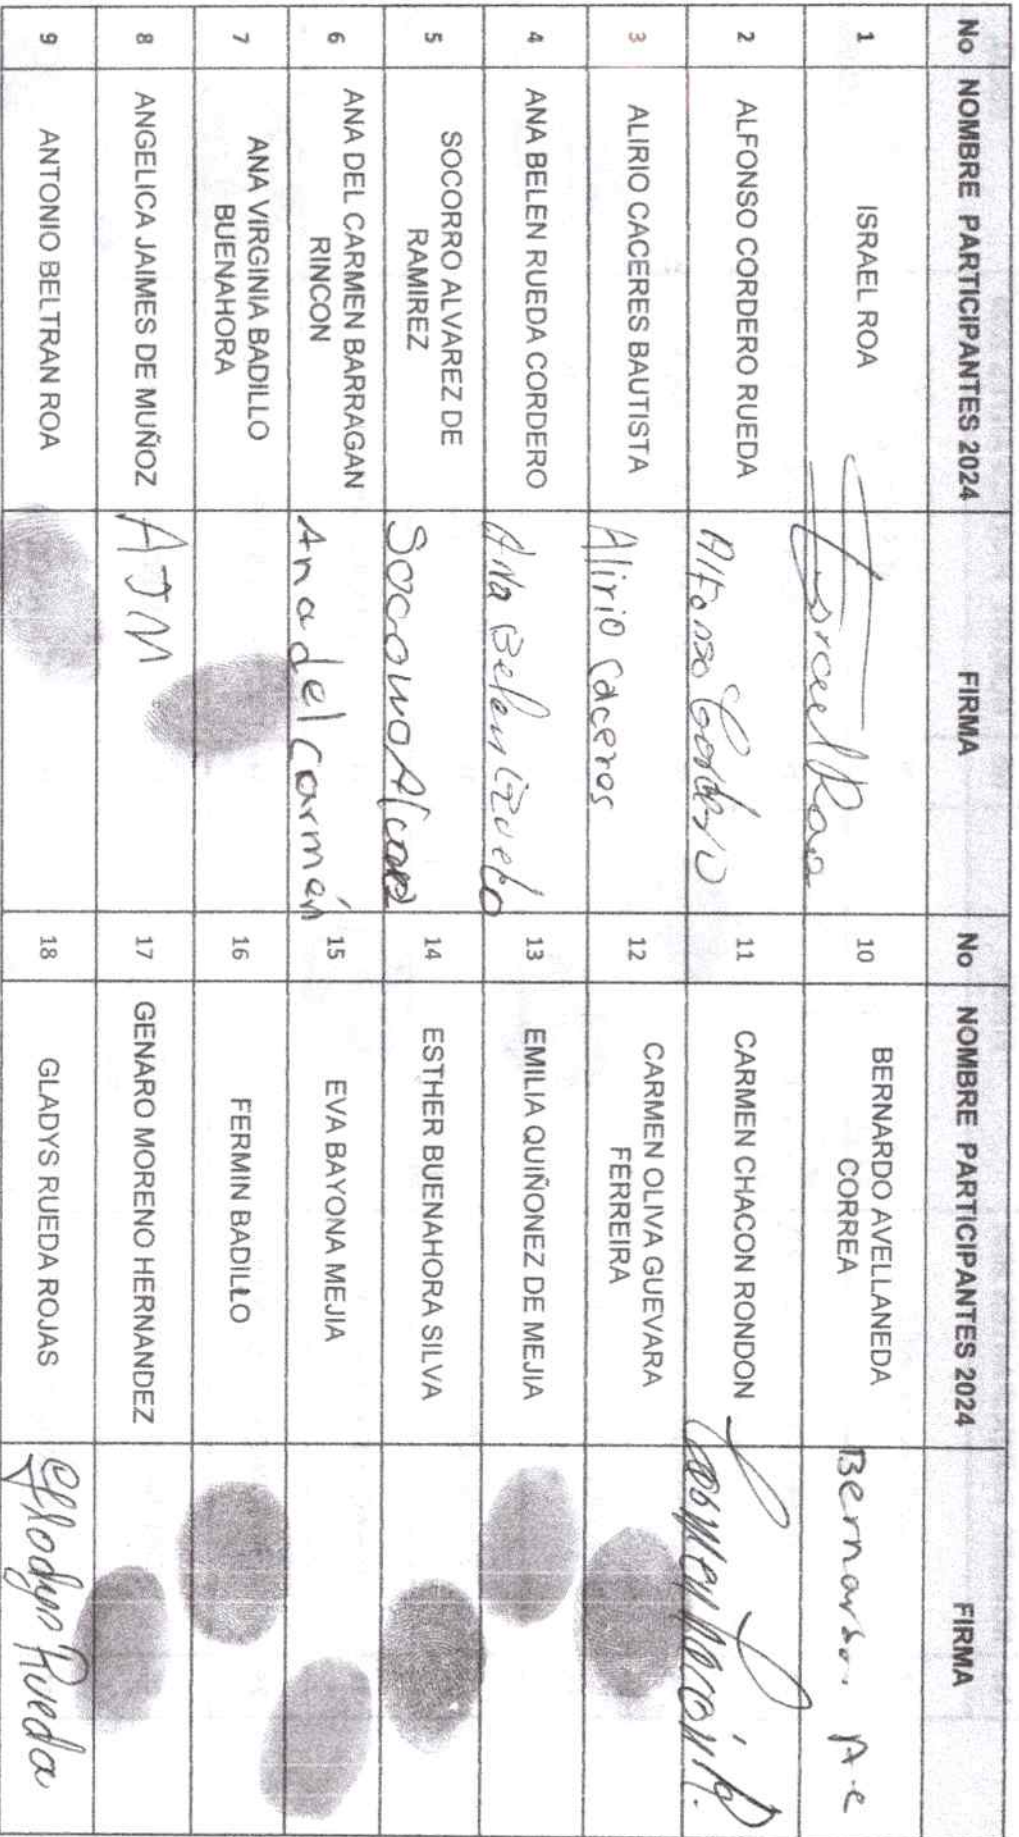 No NOMBRE PARTICIPANTES 2024 FIRMA No NOMBRE PARTICIPANTES 2024 FIRMA
1 ISRAEL ROA Israel Roa 10 BERNARDO AVELLANEDA CORREA Bernardo. A.c
2 ALFONSO CORDERO RUEDA Alfonso Cordero 11 CARMEN CHACON RONDON Carmen
3 ALIRIO CACERES BAUTISTA Alirio Caceres 12 CARMEN OLIVA GUEVARA FERREIRA
4 ANA BELEN RUEDA CORDERO Ana Belen 13 EMILIA QUIÑONEZ DE MEJIA
5 SOCORRO ALVAREZ DE RAMIREZ 14 ESTHER BUENAHORA SILVA
6 ANA DEL CARMEN BARRAGAN RINCON Ana del Carmén 15 EVA BAYONA MEJIA
7 ANA VIRGINIA BADILLO BUENAHORA 16 FERMIN BADILLO
8 ANGELICA JAIMES DE MUÑOZ AJM 17 GENARO MORENO HERNANDEZ
9 ANTONIO BELTRAN ROA 18 GLADYS RUEDA ROJAS Gladys Rueda